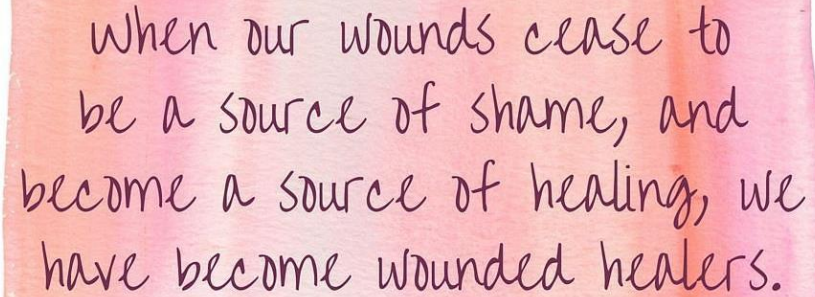 when our wounds cease to
be a source of shame, and
become a source of healing, we
have become wounded healers.